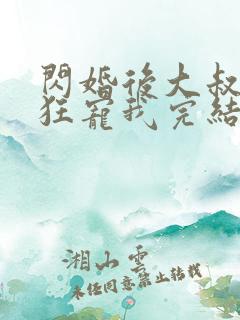 閃婚後大叔
狂寵我完結
湘山雲
未任同意禁止转载